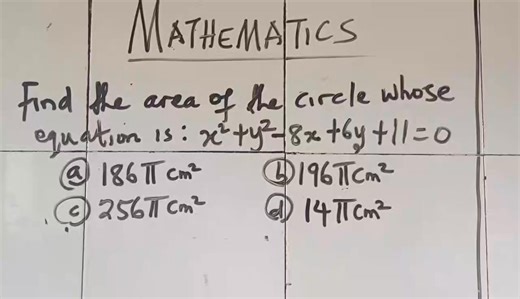 MATHEMATICS
Find the area of the circle whose
equation is: x²+y²-8x+6y+11=0
(a) 186πcm² (b) 196πcm²
(c) 256πcm² (d) 14πcm²